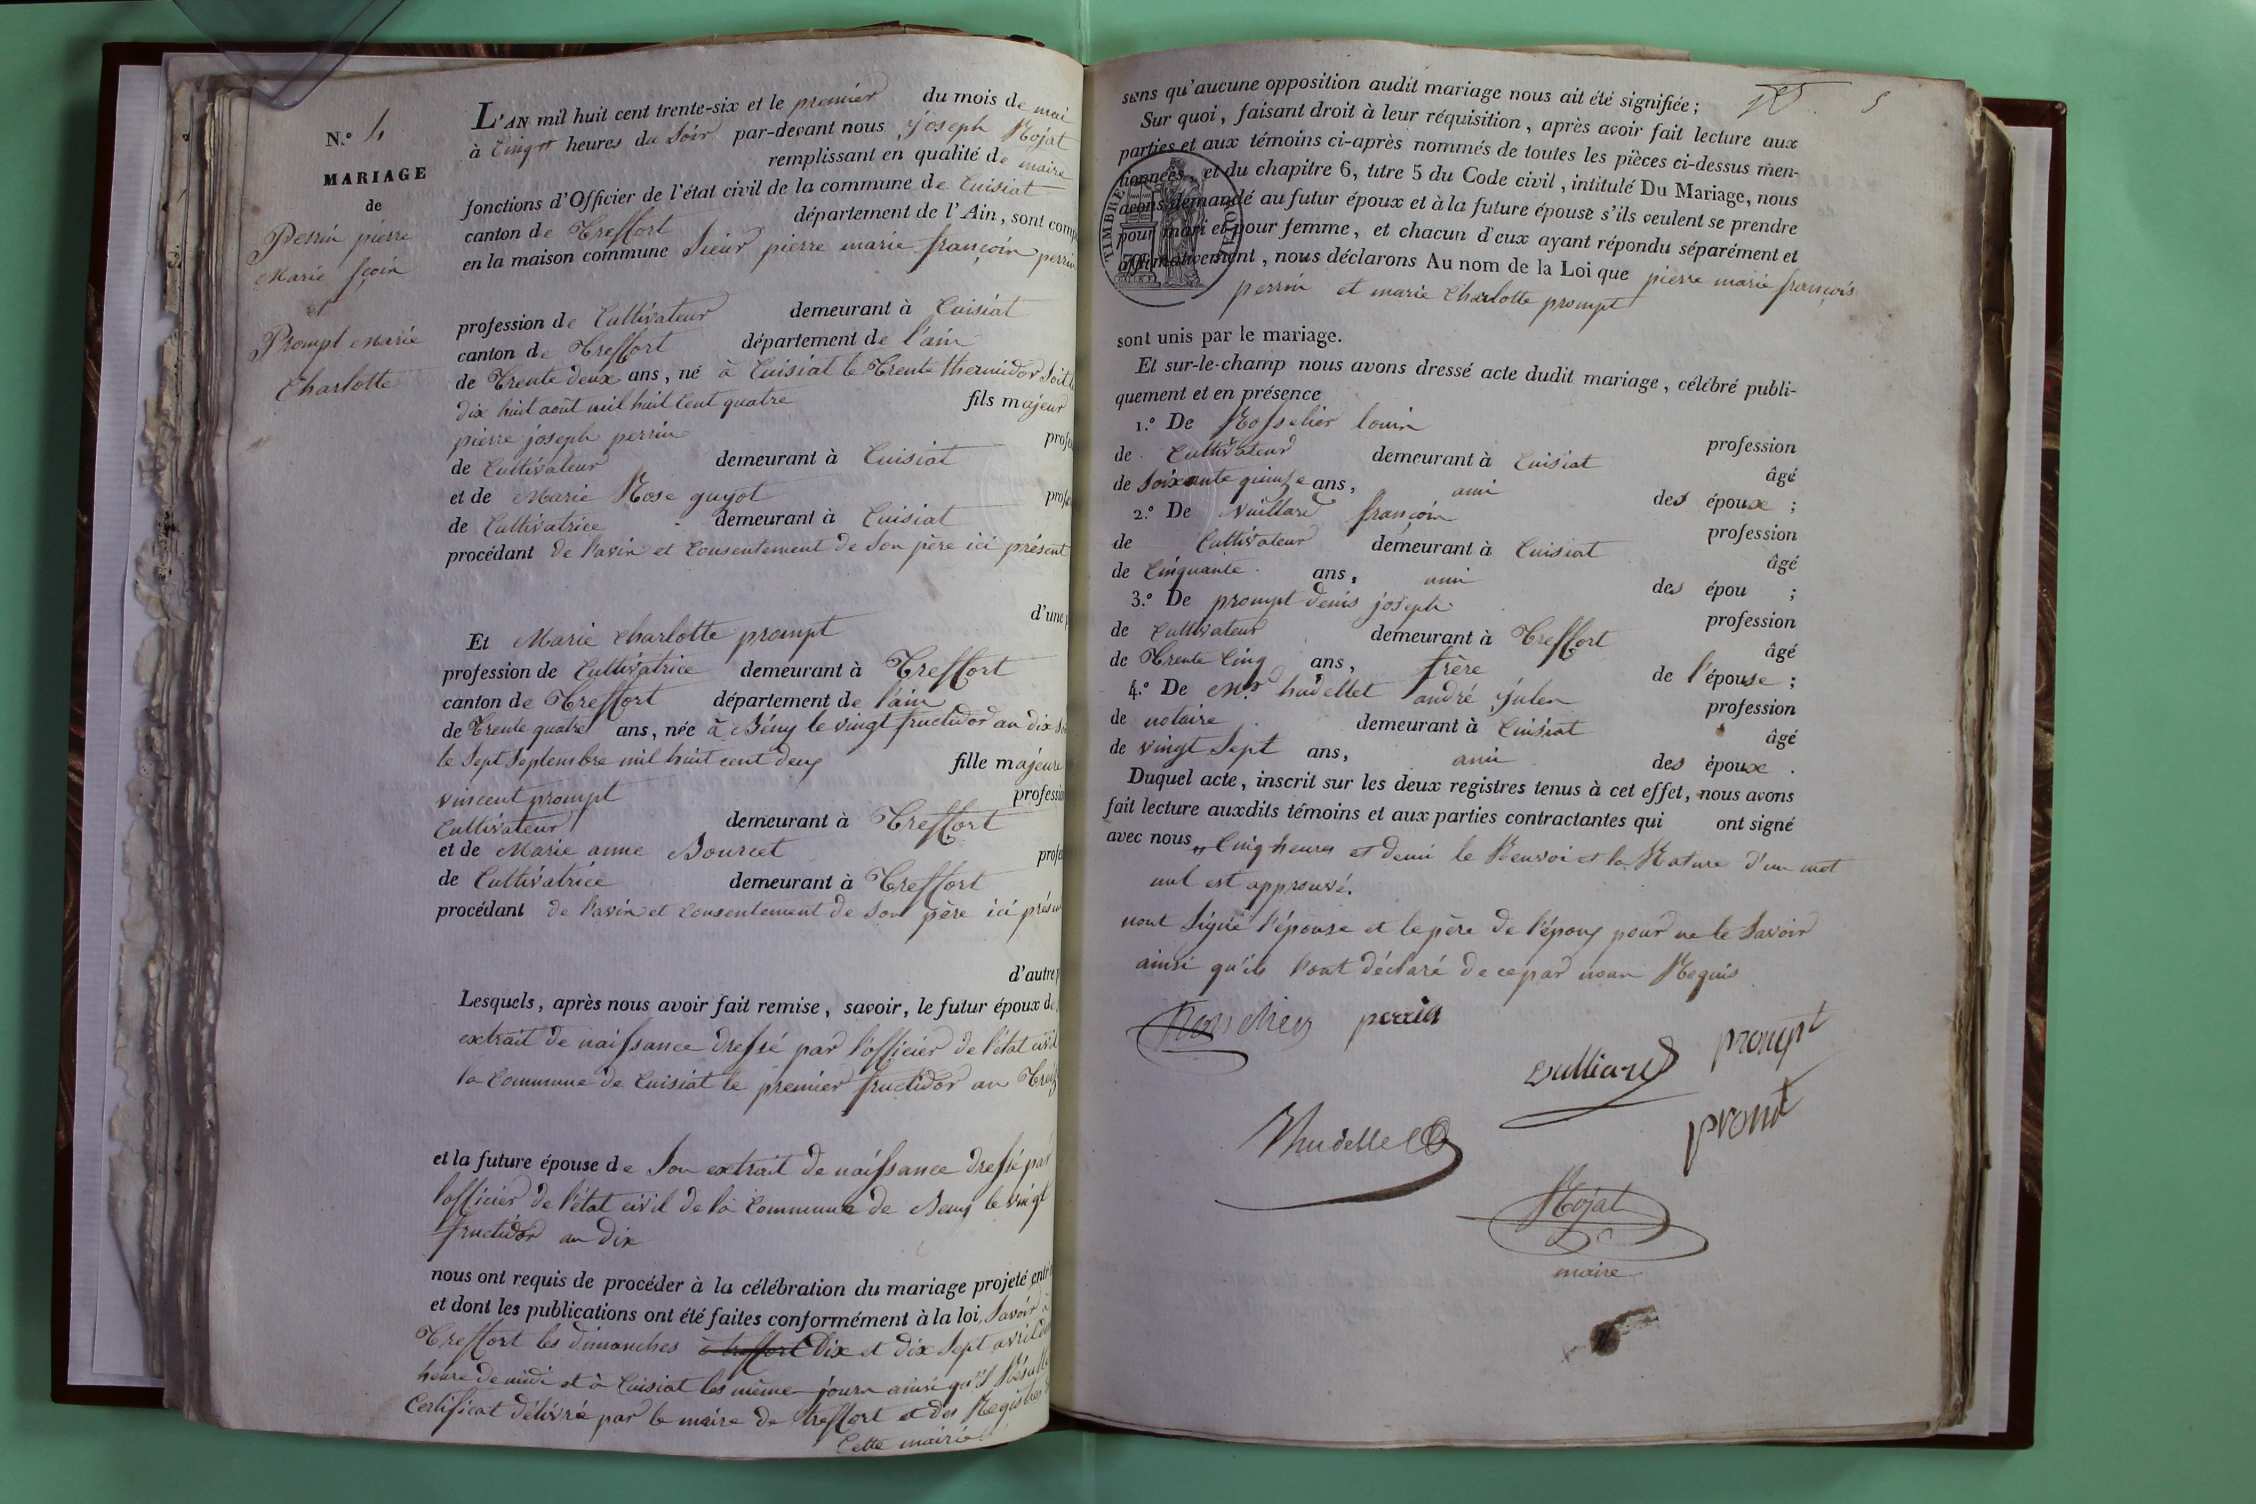 N.° 4
MARIAGE
de
Perrin pierre
Marie fçois
et
Prompt Marie
Charlotte
L'AN mil huit cent trente-six et le premier du mois de mai
à Cinq heures du Soir par-devant nous Joseph Rojat
remplissant en qualité de maire
fonctions d'Officier de l'état civil de la commune de Cuisiat
canton de Treffort département de l'Ain, sont comp
en la maison commune Sieur pierre marie françois perrin
profession de Cultivateur demeurant à Cuisiat
canton de Treffort département de l'ain
de Trente deux ans, né à Cuisiat le Trente thermidor Soit le
dix huit août mil huit Cent quatre fils majeur
pierre joseph perrin profe
de Cultivateur demeurant à Cuisiat
et de Marie Rose guyot profe
de Cultivatrice demeurant à Cuisiat
procédant de l'avis et Consentement de Son père ici présent
d'une p
Et Marie Charlotte prompt
profession de Cultivatrice demeurant à Treffort
canton de Treffort département de l'ain
de Trente quatre ans, née à Bény le vingt fructidor an dix
le Sept Septembre mil huit cent deux fille majeure
vincent prompt profession
Cultivateur demeurant à Treffort
et de Marie anne Bourcet profe
de Cultivatrice demeurant à Treffort
procédant de l'avis et Consentement de Son père ici présent
d'autre p
Lesquels, après nous avoir fait remise, savoir, le futur époux de
extrait de naissance dressé par l'officier de l'état civil
la Commune de Cuisiat le premier fructidor an Treize
et la future épouse de Son extrait de naissance dressé par
l'officier de l'état civil de la Commune de Beny le vingt
fructidor an dix
nous ont requis de procéder à la célébration du mariage projeté entr
et dont les publications ont été faites conformément à la loi, Savoir à
Treffort les dimanches à treffort Dix et dix Sept avril
heure de midi et à Cuisiat les même jours ainsi qu'il Résulte
Certificat délivré par le maire de treffort et des Registres
Cette mairie
5
sans qu'aucune opposition audit mariage nous ait été signifiée;
Sur quoi, faisant droit à leur réquisition, après avoir fait lecture aux
parties et aux témoins ci-après nommés de toutes les pièces ci-dessus men-
tionnées, et du chapitre 6, titre 5 du Code civil, intitulé Du Mariage, nous
avons demandé au futur époux et à la future épouse s'ils veulent se prendre
pour mari et pour femme, et chacun d'eux ayant répondu séparément et
affirmativement, nous déclarons Au nom de la Loi que pierre marie françois
perrin et marie Charlotte prompt
TIMBRE ROYAL
sont unis par le mariage.
Et sur-le-champ nous avons dressé acte dudit mariage, célébré publi-
quement et en présence
1.° De Rosselier louis profession
de Cultivateur demeurant à Cuisiat âgé
de Soixante quinze ans, ami des époux ;
2.° De Vuillard françois profession
de Cultivateur demeurant à Cuisiat âgé
de Cinquante ans, ami des épou ;
3.° De prompt denis joseph profession
de Cultivateur demeurant à Treffort âgé
de Trente Cinq ans, frère de l'épouse ;
4.° De Mr. hudellet andré Julen profession
de notaire demeurant à Cuisiat âgé
de vingt Sept ans, ami des époux .
Duquel acte, inscrit sur les deux registres tenus à cet effet, nous avons
fait lecture auxdits témoins et aux parties contractantes qui ont signé
avec nous Cinq heures et demi le Renvoi et la Rature d'un mot
nul est approuvé.
nont Signé l'épouse et le père de l'époux pour ne le Savoir
ainsi qu'ils l'ont déclaré de ce par nous Requis
perrin
vulliard prompt
hudellet promt
Rojat
maire